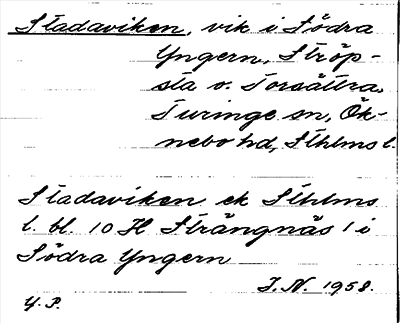 Stadaviken, vik i Södra
Yngern, Ströp-
sta o. Torsättra,
Turinge sn, Ök-
nebo hd, Sthlms l.
Stadaviken ek Sthlms
l. bl. 10 H Strängnäs 1 i
Södra Yngern
I.N. 1958.
Y.P.